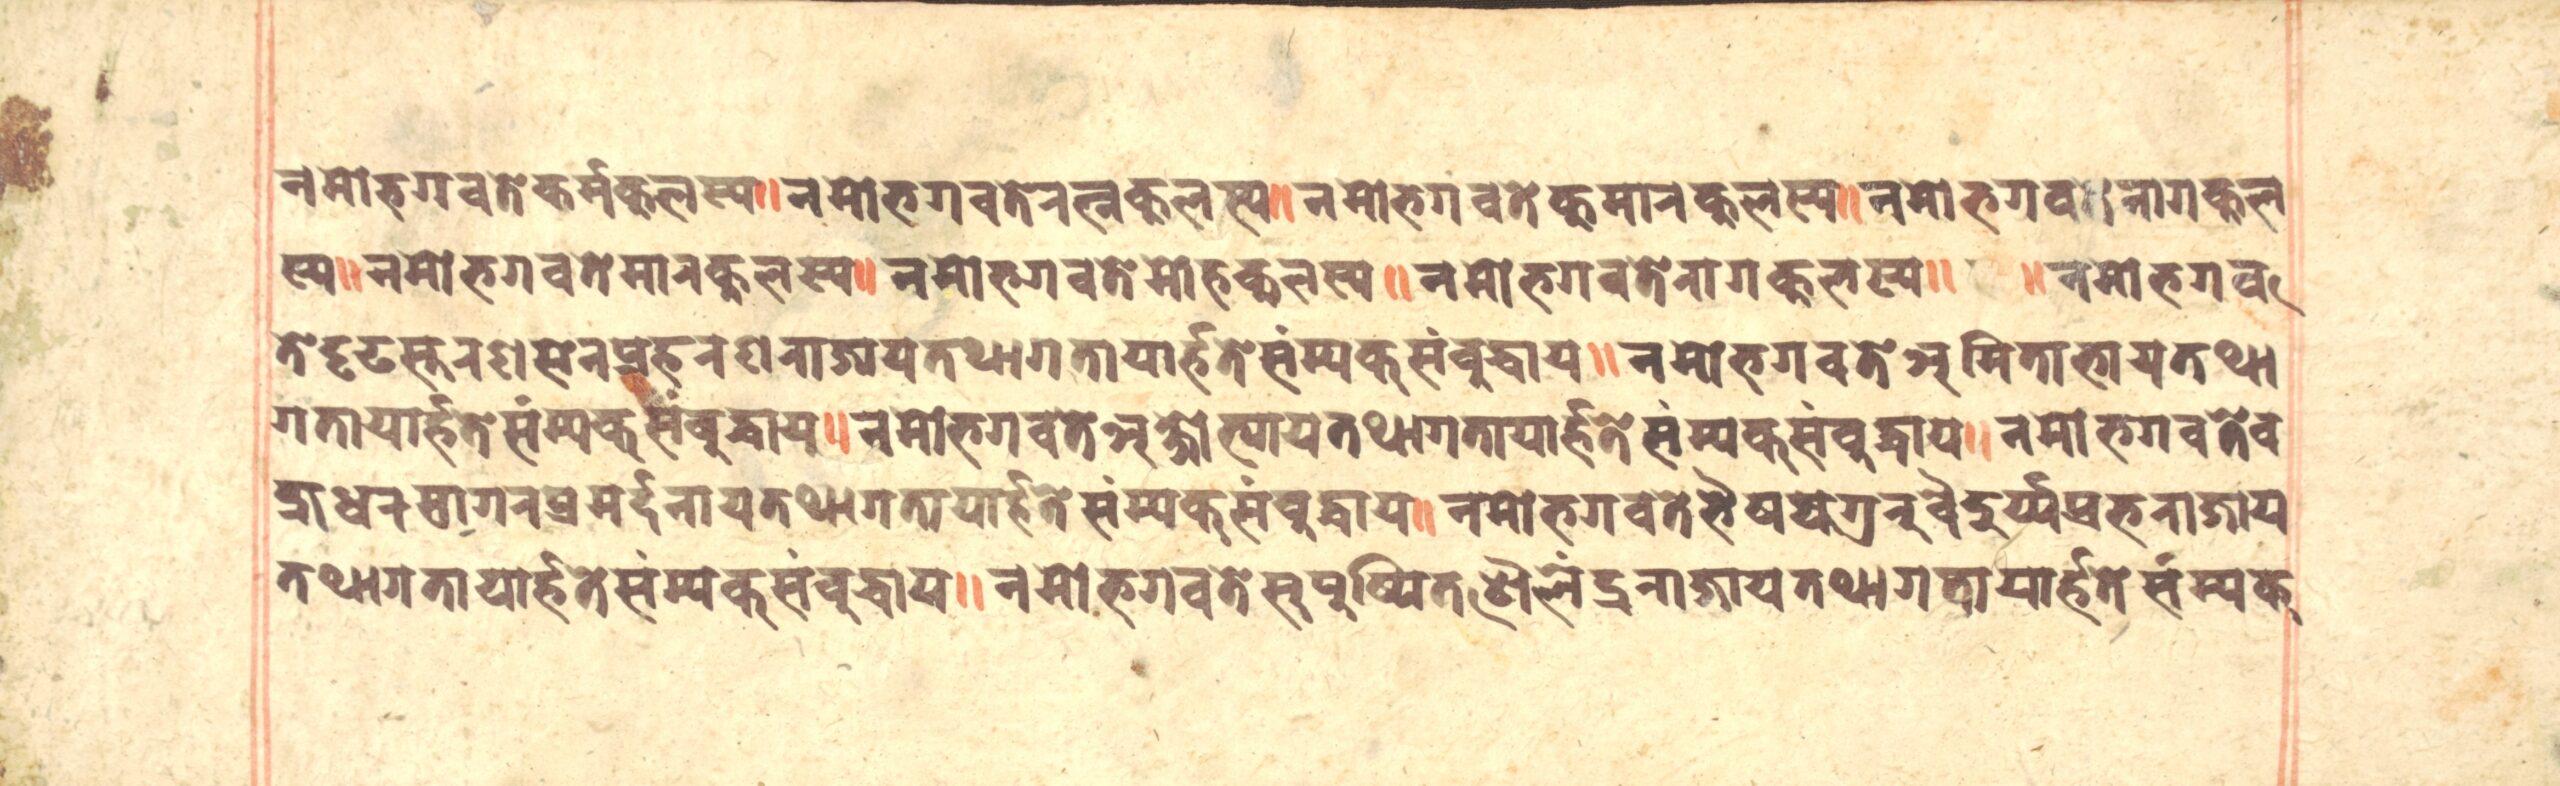 नमोभगवतेकर्मकुलस्य॥नमोभगवतेरत्नकुलस्य॥नमोभगवतेकुमारकुलस्य॥नमोभगव नागकुल
स्य॥नमोभगवतेमारकुलस्य॥नमोभगवतेमोहकुलस्य॥नमोभगवतेरागकुलस्य॥ ॥नमोभगव
तेदृढसूरशसेनप्रहरशराज्ययतथागतायार्हतेसंम्यक्संबुद्धाय॥नमोभगवतेअमिताभायतथा
गतायार्हतेसंम्यक्संबुद्धाय॥नमोभगवतेअक्षोभ्यायतथागतायार्हतेसंम्यक्संबुद्धाय॥नमोभगवतेव
ज्रधरसागरप्रमर्द्दनायतथागतायार्हतेसंम्यक्संबुद्धाय॥नमोभगवतेभैषज्यगुरुवैदुर्य्यप्रभराजाय
तथागतायार्हतेसंम्यक्संबुद्धाय॥नमोभगवतेसुपुष्पितशैलेंद्रराजायतथागतायार्हतेसंम्यक्